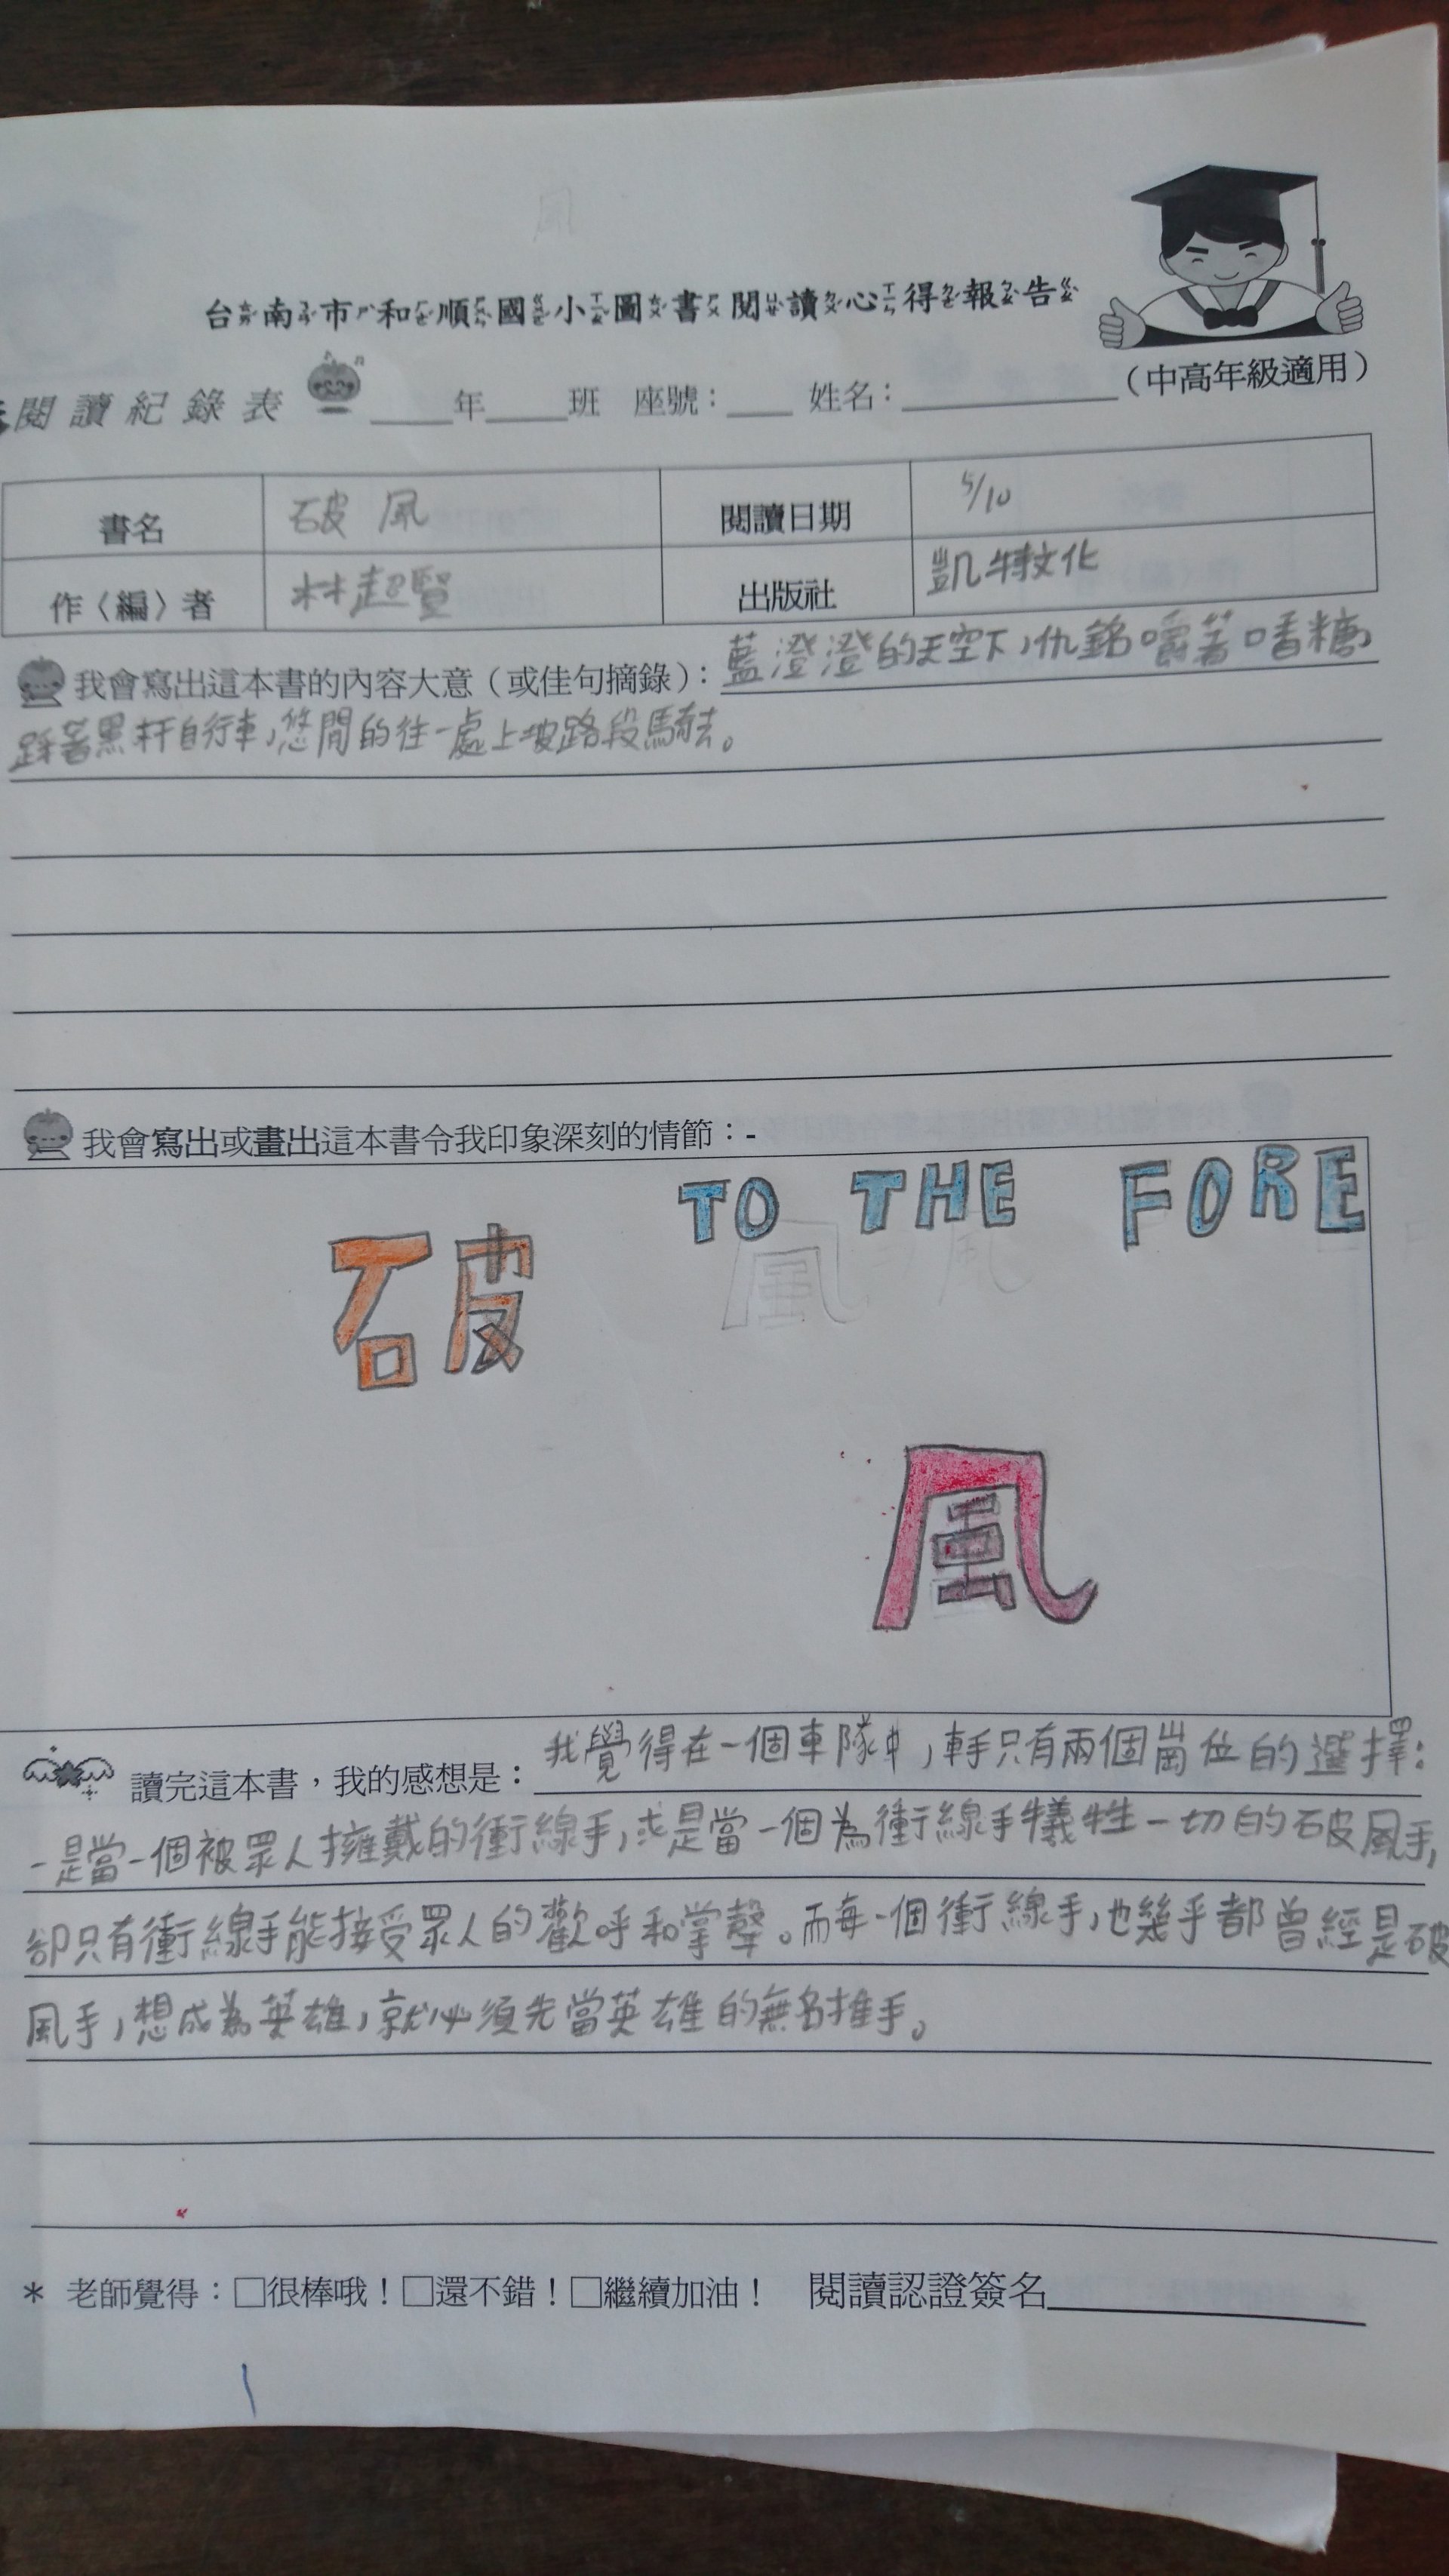 台南市和順國小圖書閱讀心得報告
閱讀紀錄表 ____年____班 座號：____ 姓名：____________（中高年級適用）
書名 破風 閱讀日期 5/10
作〈編〉者 林超賢 出版社 凱特文化
我會寫出這本書的內容大意（或佳句摘錄）：藍澄澄的天空下，仇銘嚼著口香糖，
踩著黑杆自行車，悠閒的往一處上坡路段騎去。
我會寫出或畫出這本書令我印象深刻的情節：-
TO THE FORE
破
風
讀完這本書，我的感想是：我覺得在一個車隊中，車手只有兩個崗位的選擇：
一是當一個被眾人擁戴的衝線手，或是當一個為衝線手犧牲一切的破風手，
卻只有衝線手能接受眾人的歡呼和掌聲。而每一個衝線手，也幾乎都曾經是破
風手，想成為英雄，就必須先當英雄的無名推手。
* 老師覺得：□很棒哦！□還不錯！□繼續加油！ 閱讀認證簽名____________